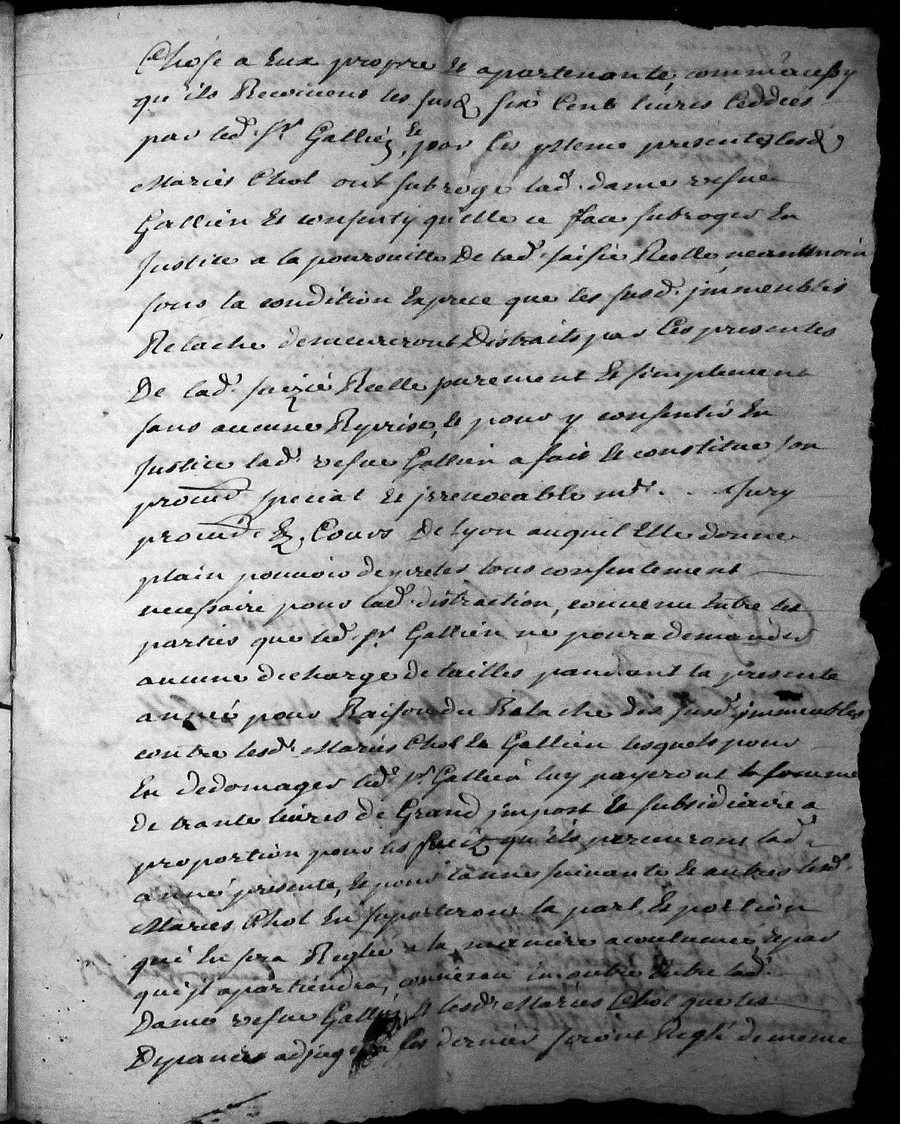 Chose a Eux propre Et apartenante comm'aussy
qu'ils Recoivent les susd. six Cent livres Ceddées
par led. sr. Gallien, Et par ces mesme presentes lesd.
Mariés Chol ont subrogé lad. dame vefue
Gallien Et consenty qu'elle ce face subroger En
Justice a la poursuitte De lad. saisie Reelle neantmoin
sous la condition Exprece que les susd. jmmeubles
Relaché demeureront Distraits par Ces presentes
De lad. saizié Reelle purement Et simplement
sans aucune Reprise, Et pour y consentir En
Justice lad. vefue Gallien a fait Et constitue son
procur. special Et jrrevocable me. . . Jury
procur. Ez Cours De Lyon auquel Elle donne
plain pouvoir de pretes tous consentement
necessaire pour lad. distraction, convenu Entre les
parties que led. sr. Gallien ne poura demander
aucune decharge de tailles pandant la presente
année pour Raison du Relache des susd. jmmeubles
contre lesd. Mariés Chol Et Gallien lesquels pour
En dedomager led. sr. Gallien luy payeront la somme
de trante livres de Grand jmpost Et subsidiaire a
proportion pour les qu'ils perceuront lad.
année presente, Et pour l'année suivante Et autres lesd.
Mariés Chol En suporteront la part Et portion
qui En sera Reglé a la maniere acoutumée Et par
qu'jl apartiendra, convenu En outre Entre lad.
Dame vefue Gallien Et lesd. Mariés Chol que les
Depances adjugés a Ces dernier seront Reglé de meme